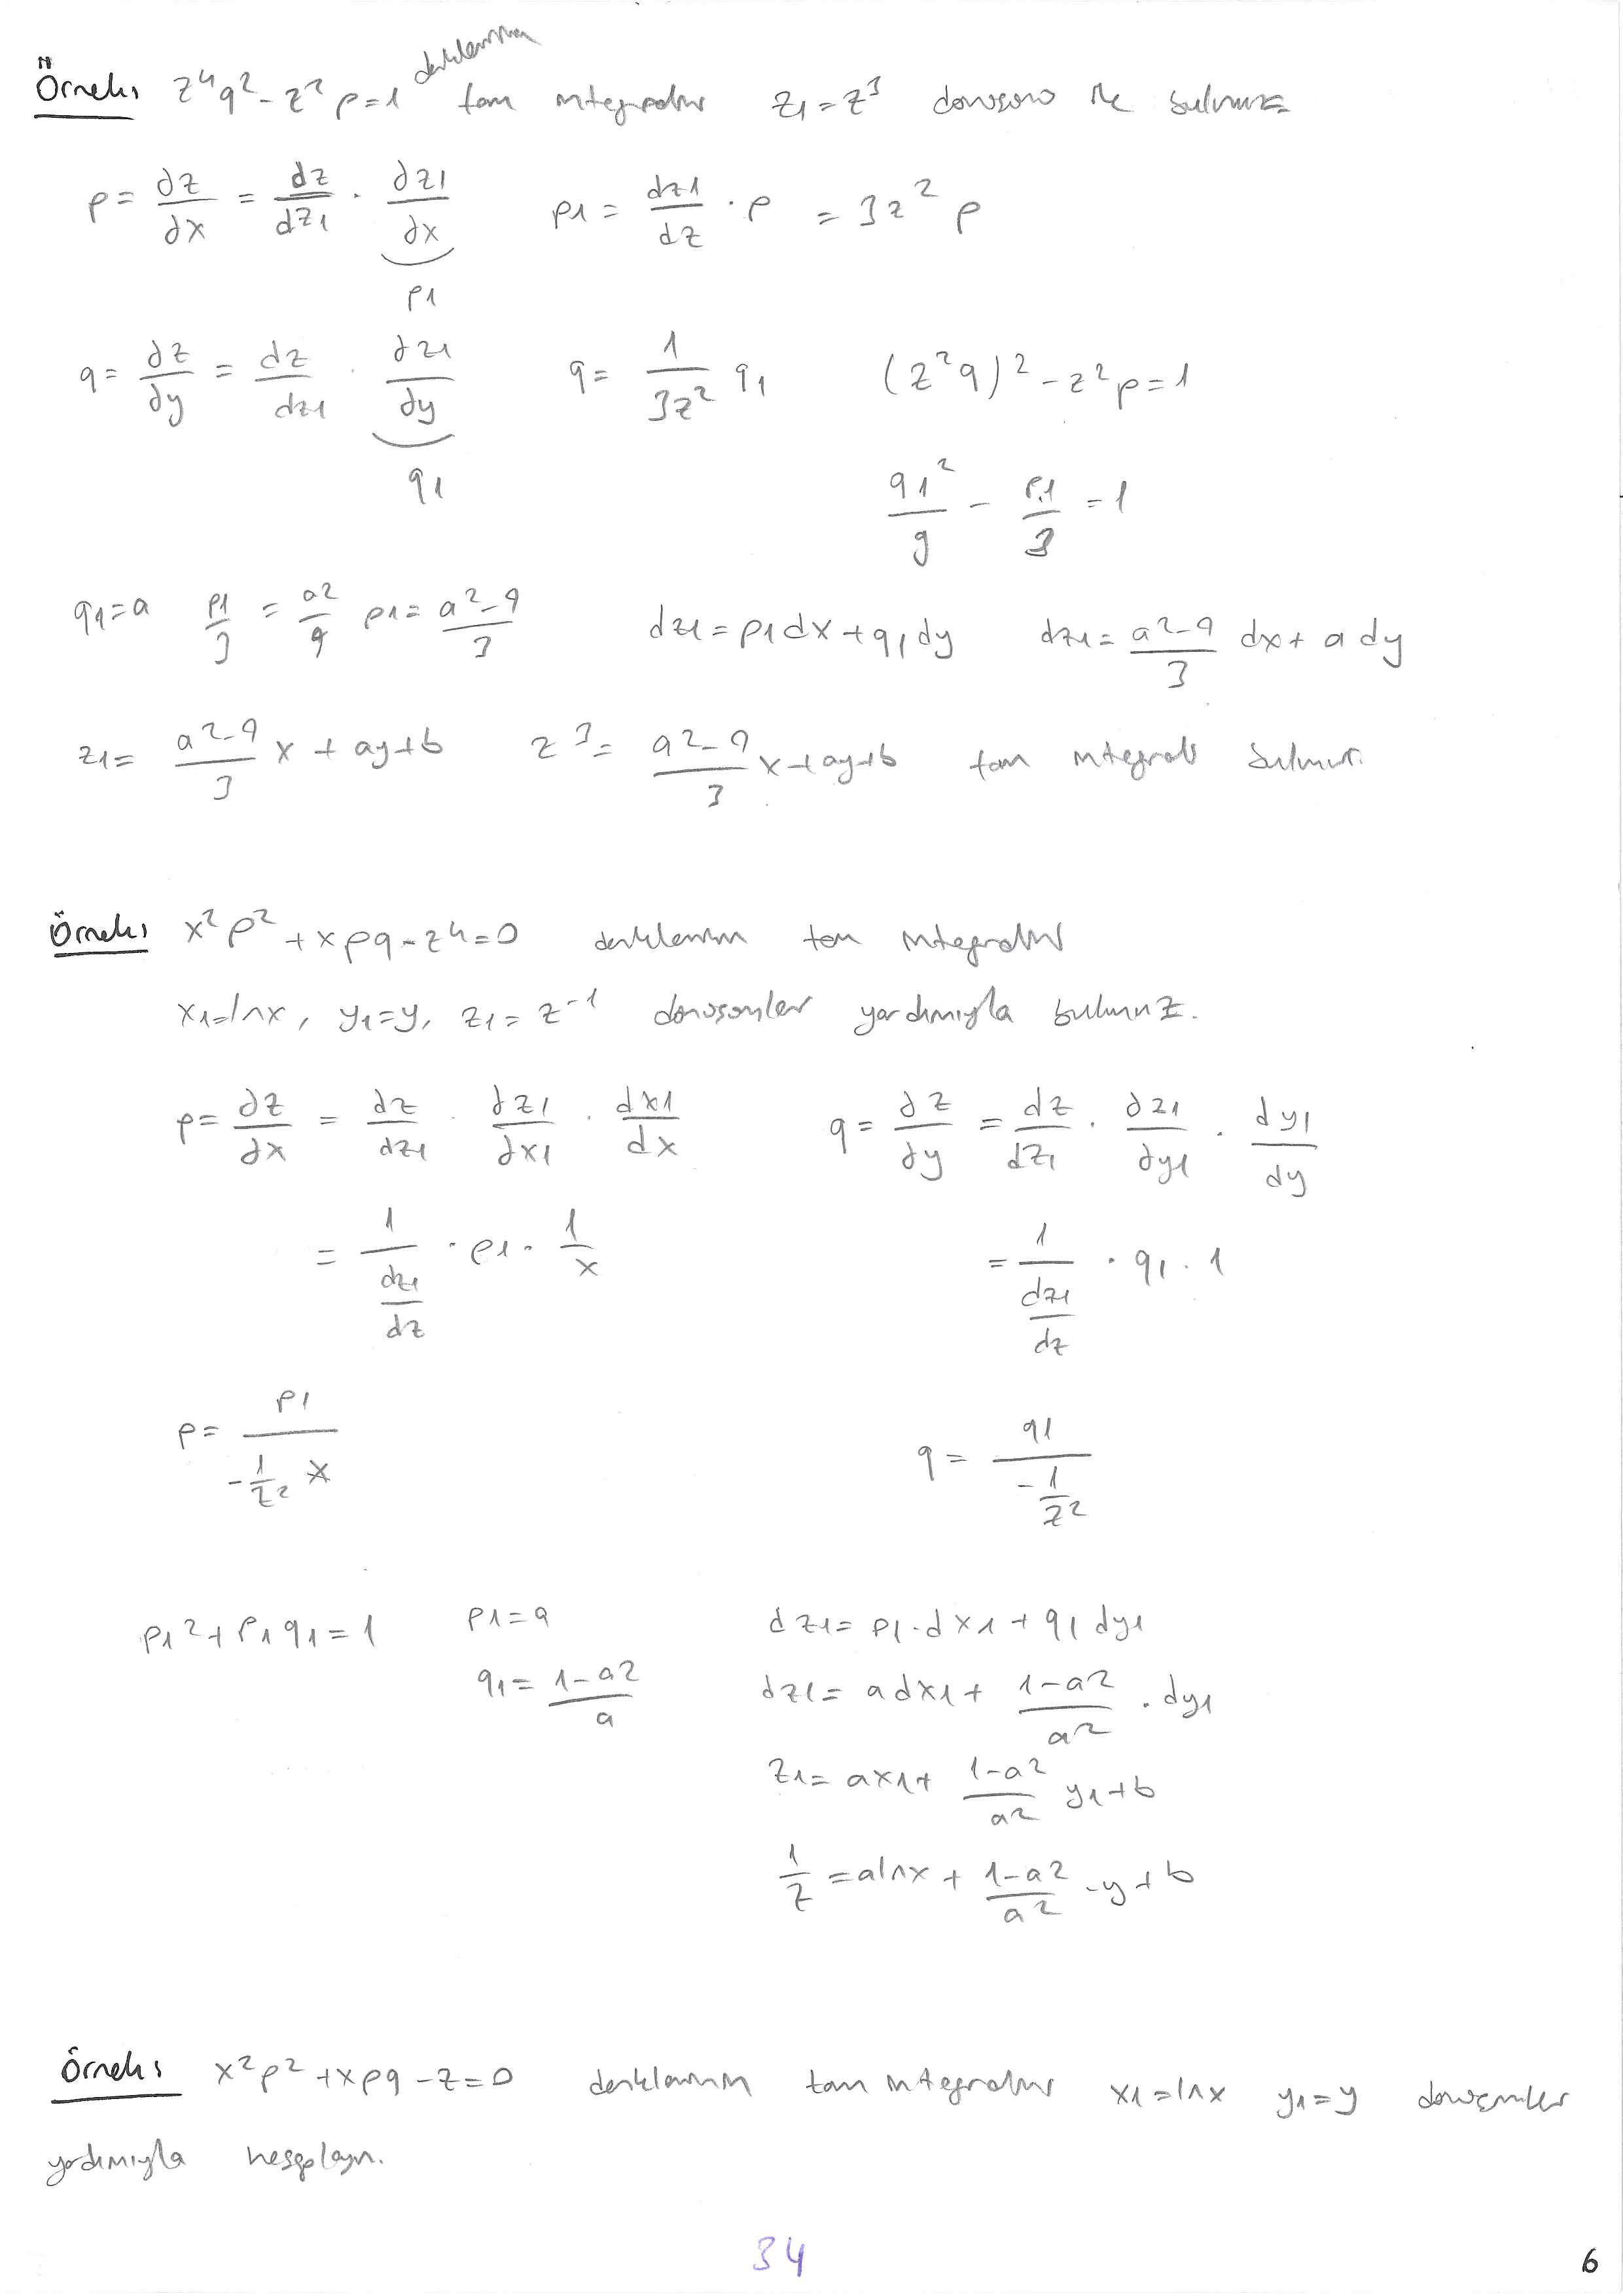 Örnek: z⁴q² - z²p = 1 denkleminin tam integralini z1 = z³ dönüşümü ile bulunuz
p = ∂z/∂x = dz/dz1 . ∂z1/∂x   p1 = dz1/dz . p = 3z²p
p1
q = ∂z/∂y = dz/dz1 . ∂z1/∂y   q = 1/3z² q1   (z²q)² - z²p = 1
q1   q1²/9 - p1/3 = 1
q1 = a   p1/3 = a²/9   p1 = a²-9/3   dz1 = p1dx + q1dy   dz1 = a²-9/3 dx + a dy
z1 = a²-9/3 x + ay + b   z³ = a²-9/3 x + ay + b   tam integrali bulunur.
Örnek: x²p² + xpq - z⁴ = 0 denkleminin tam integralini
x1 = lnx, y1 = y, z1 = z⁻¹ dönüşümler yardımıyla bulunuz.
p = ∂z/∂x = dz/dz1 . ∂z1/∂x1 . dx1/dx   q = ∂z/∂y = dz/dz1 . ∂z1/∂y1 . dy1/dy
= 1/(dz1/dz) . p1 . 1/x   = 1/(dz1/dz) . q1 . 1
p = p1/(-1/z² x)   q = q1/(-1/z²)
p1² + p1q1 = 1   p1 = a   dz1 = p1.dx1 + q1dy1
q1 = 1-a²/a   dz1 = adx1 + 1-a²/a² . dy1
z1 = ax1 + 1-a²/a² y1 + b
1/z = alnx + 1-a²/a² . y + b
Örnek: x²p² + xpq - z = 0 denkleminin tam integralini x1 = lnx y1 = y dönüşümler
yardımıyla hesaplayın.
34
6